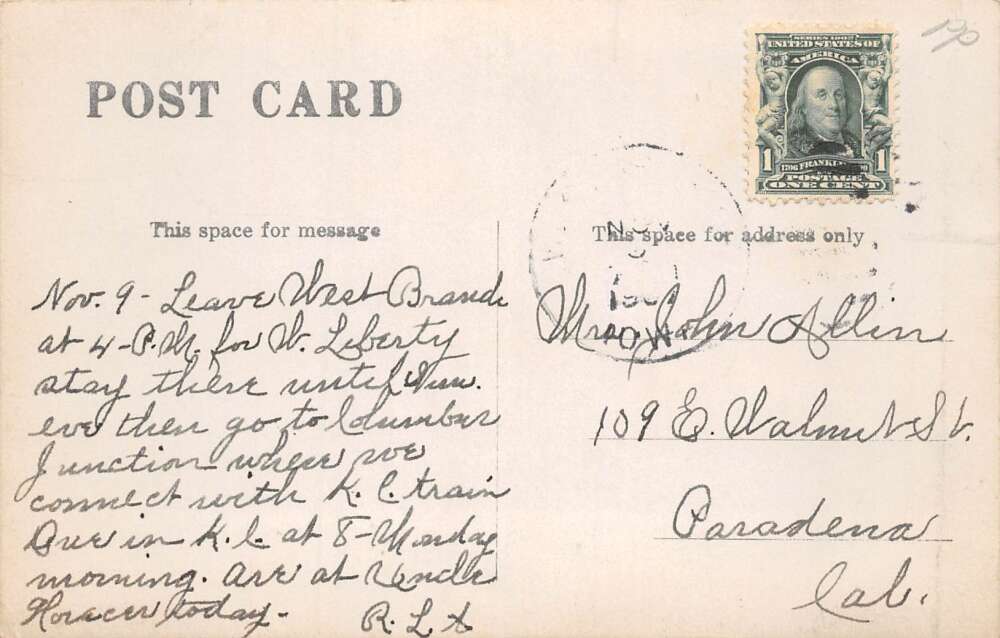 POST CARD
SERIES 1902
UNITED STATES OF
AMERICA
1 1
1706 FRANKLIN
POSTAGE
ONE CENT
This space for message
This space for address only
NOV
9
IOWA
Nov. 9 - Leave West Branch
at 4 - P.M. for W. Liberty
stay there until Sun.
eve then go to Columbus
Junction where we
connect with K. C. train
Due in K. C. at 8 - Monday
morning. Are at Uncle
Horaces today -
R. L. A
Mrs John Allin
109 E. Walnut St.
Pasadena
Cal.